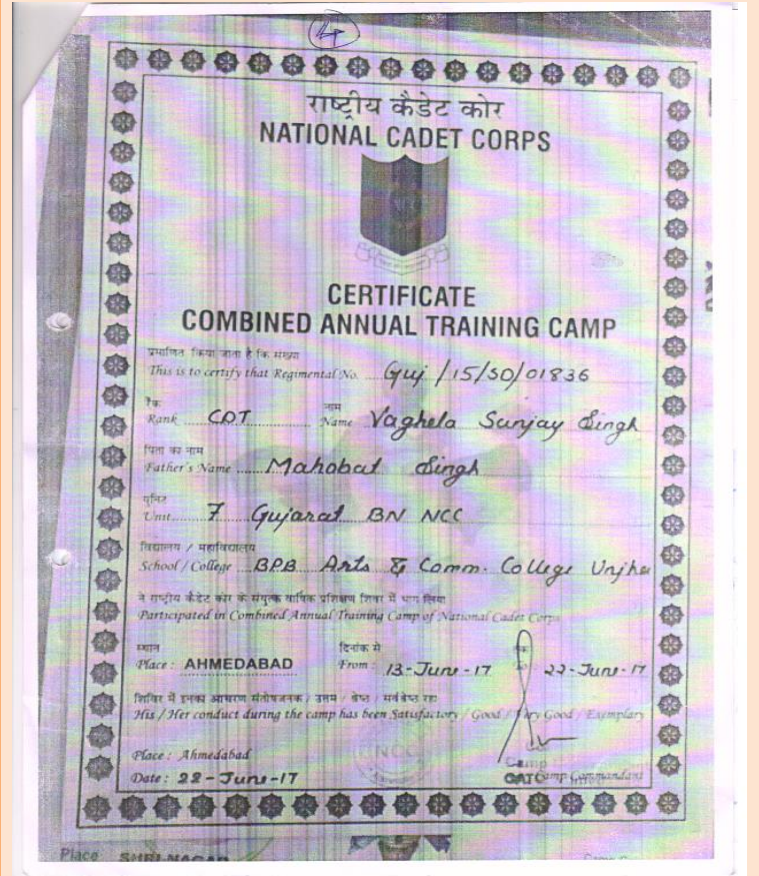 4
राष्ट्रीय कैडेट कोर
NATIONAL CADET CORPS
CERTIFICATE
COMBINED ANNUAL TRAINING CAMP
प्रमाणित किया जाता है कि संख्या
This is to certify that Regimental No. Guj/15/SD/01836
रैंक नाम
Rank CDT Name Vaghela Sanjay Singh
पिता का नाम
Father's Name Mahobat Singh
यूनिट
Unit 7 Gujarat BN NCC
विद्यालय / महाविद्यालय
School / College BPB Arts & Comm. College Unjha
ने राष्ट्रीय कैडेट कोर के संयुक्त वार्षिक प्रशिक्षण शिविर में भाग लिया
Participated in Combined Annual Training Camp of National Cadet Corps
स्थान दिनांक से
Place : AHMEDABAD From : 13-June-17 To 22-June-17
शिविर में इनका आचरण संतोषजनक / उत्तम / श्रेष्ठ / सर्वश्रेष्ठ रहा
His / Her conduct during the camp has been Satisfactory / Good / Very Good / Exemplary
NCC
Place : Ahmedabad
Camp
Date : 22-June-17 CATC Camp Commandant
Place SHRI NAGAR